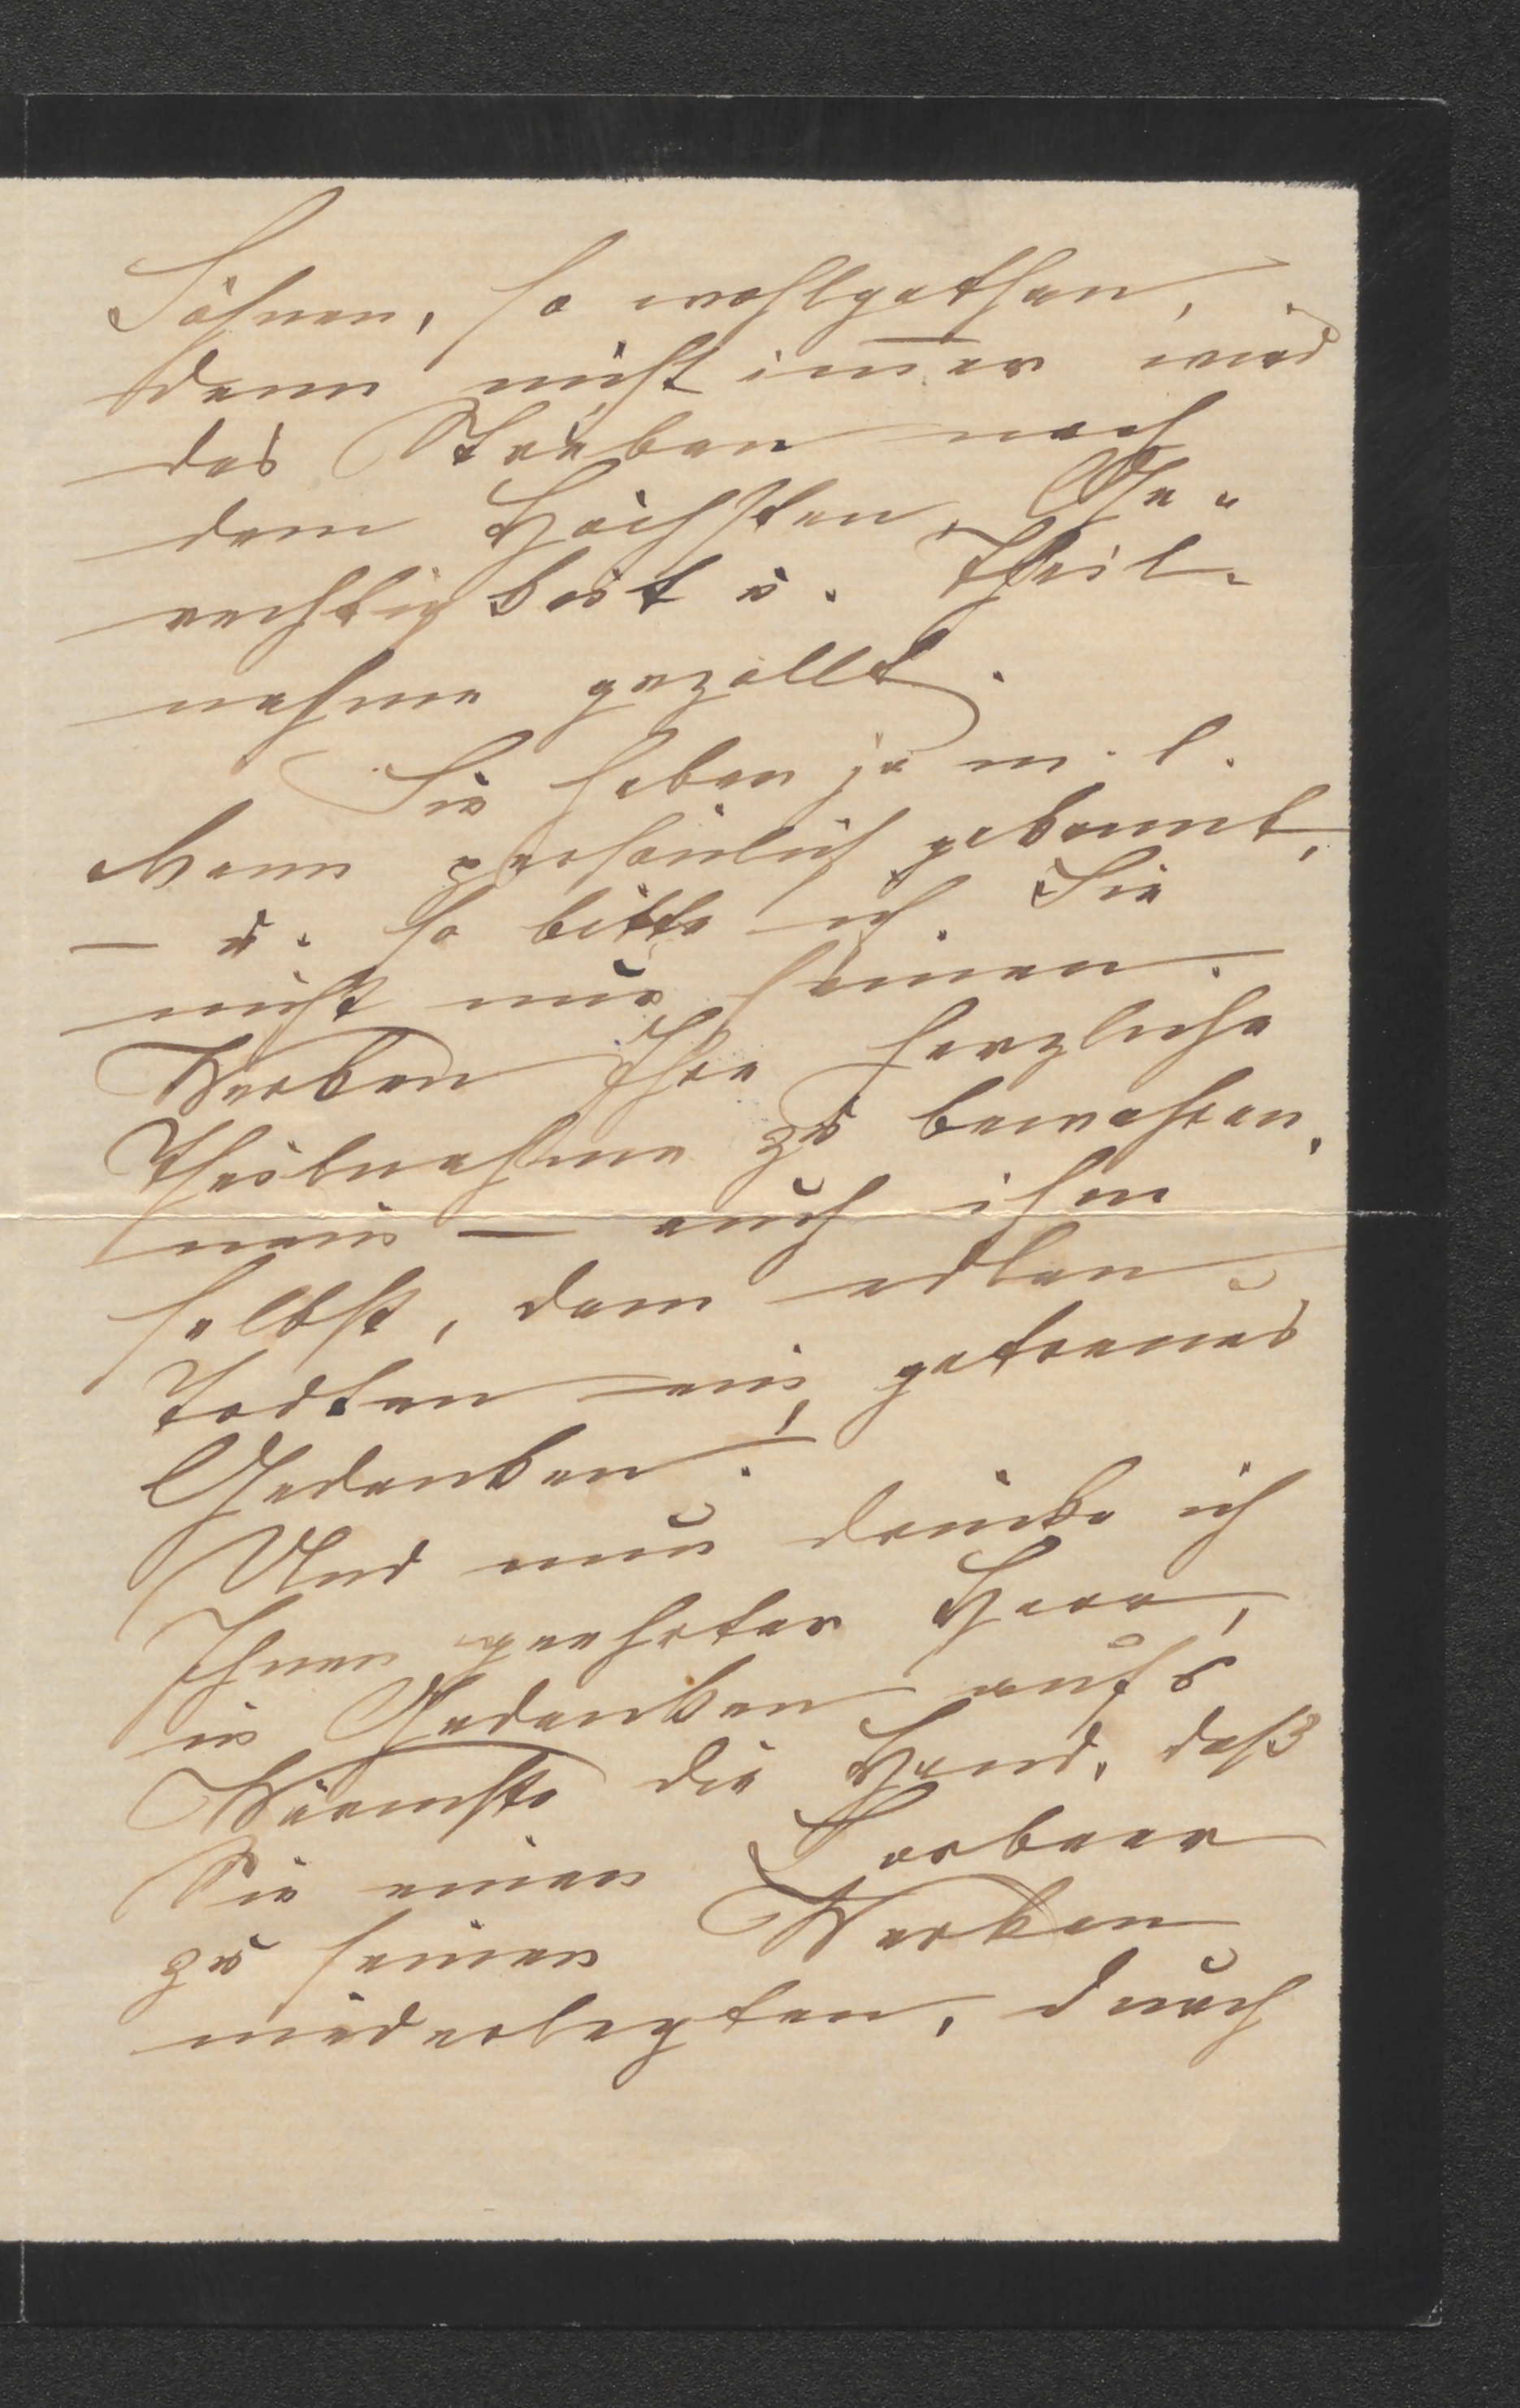 Söhnen, so wohlgethan,
denn nicht im̅er wird
das Streben nach
dem Höchsten, Ge-
rechtigkeit u. Theil-
nahme gezollt.
Sie haben ja m. l.
Mann persönlich gekannt,
— u. so bitte ich Sie
nicht nur seinen
Werken Ihre herzliche
Theilnahme zu bewahren,
nein — auch ihm
selbst, dem edlen
Todten ein getreues
Gedenken!
Und nun drücke ich
Ihnen geehrter Herr,
in Gedanken aufs
Wärmste die Hand, daß
Sie einen Lorbeer
zu seinen Werken
niederlegten, durch